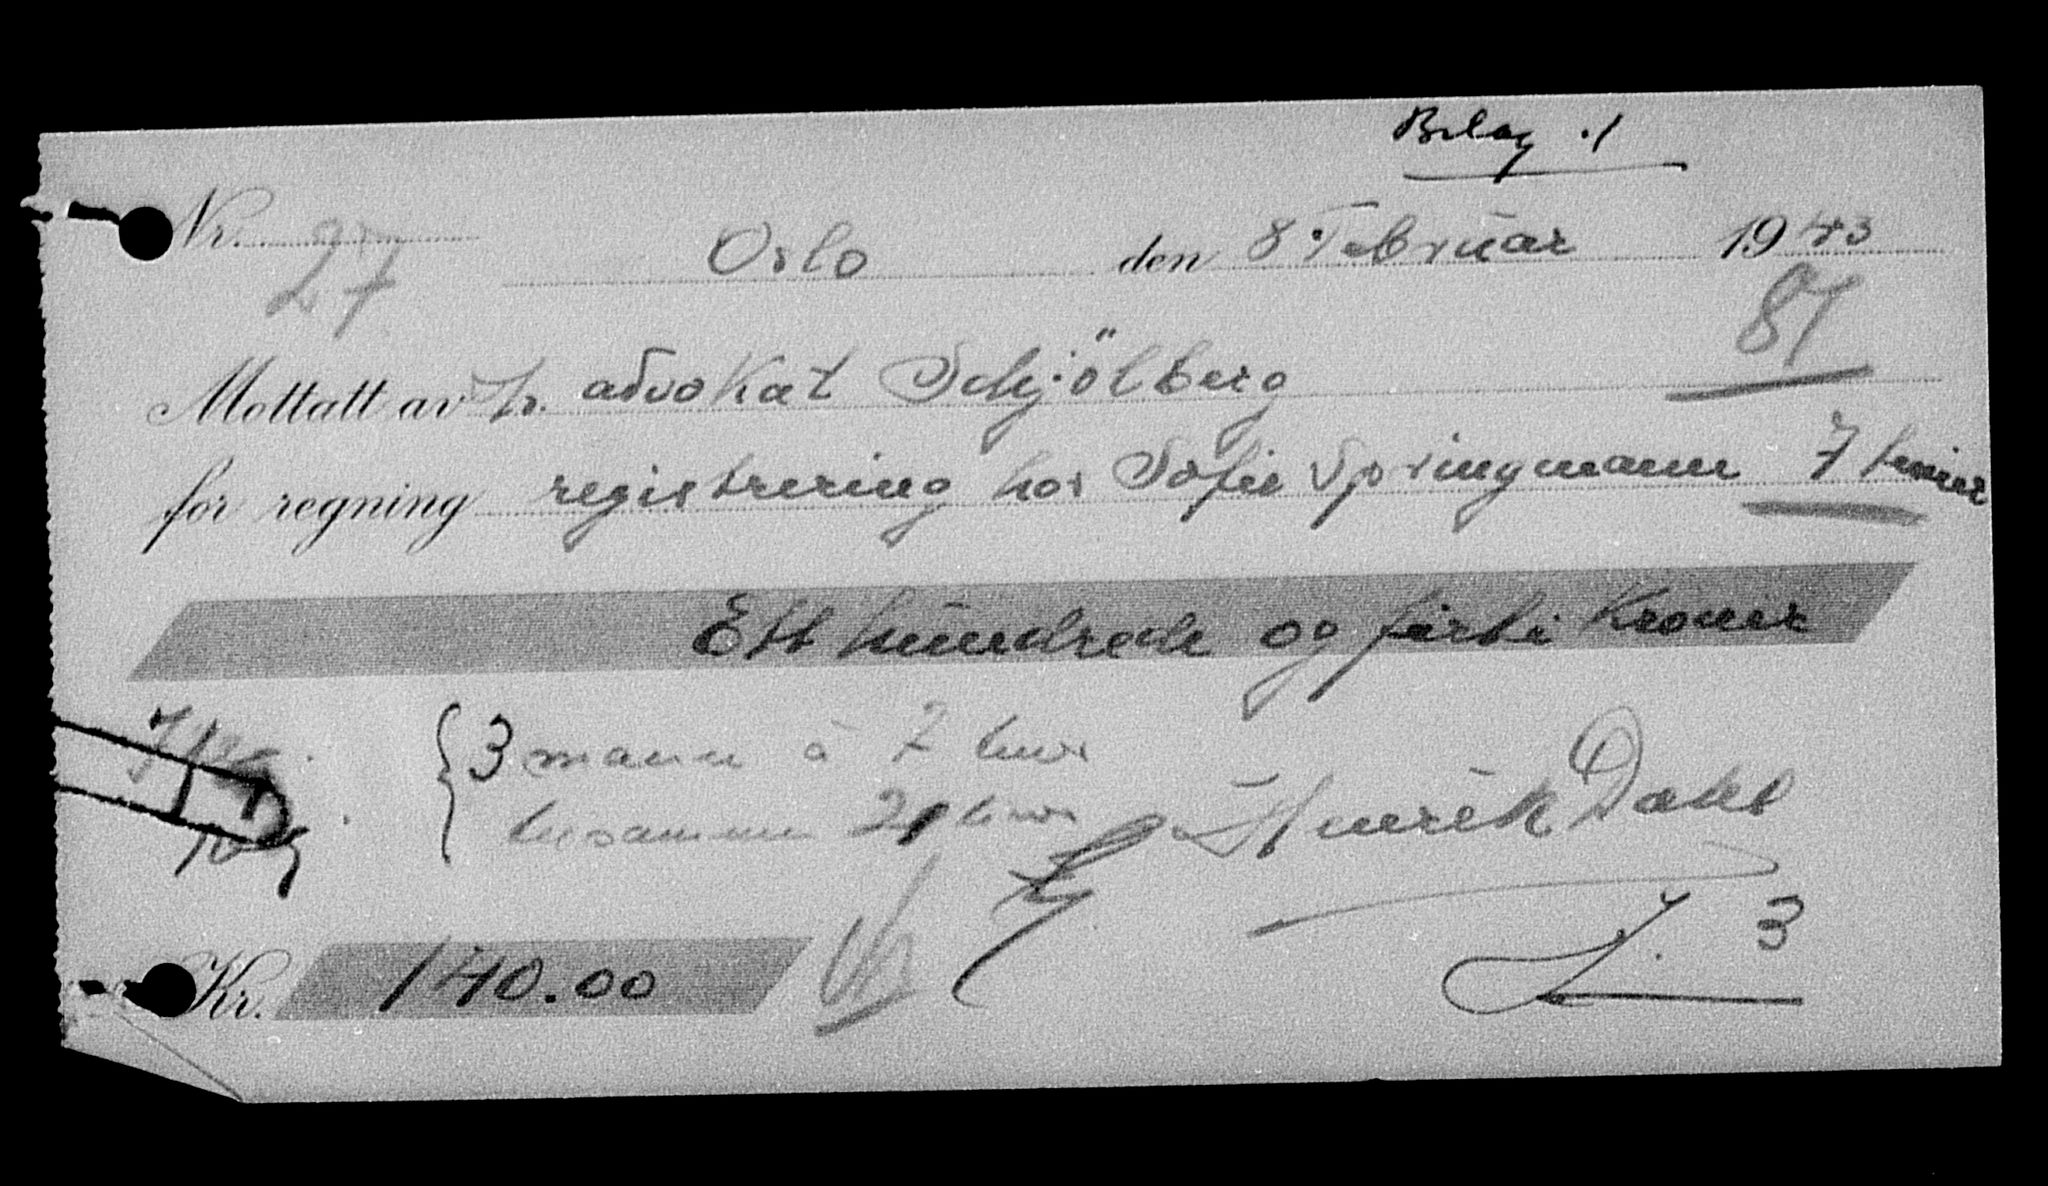 Bilag 1
Nr. 27 Oslo den 8 Februar 1943
87
Mottatt av hr. advokat Schjölberg
for regning registrering hos Sofie Springmann 7 timer
Ett hundrede og førti Kroner
3 mann à 7 timer
tilsammen 21 timer
Henrik Dahl
3
Kr. 140.00